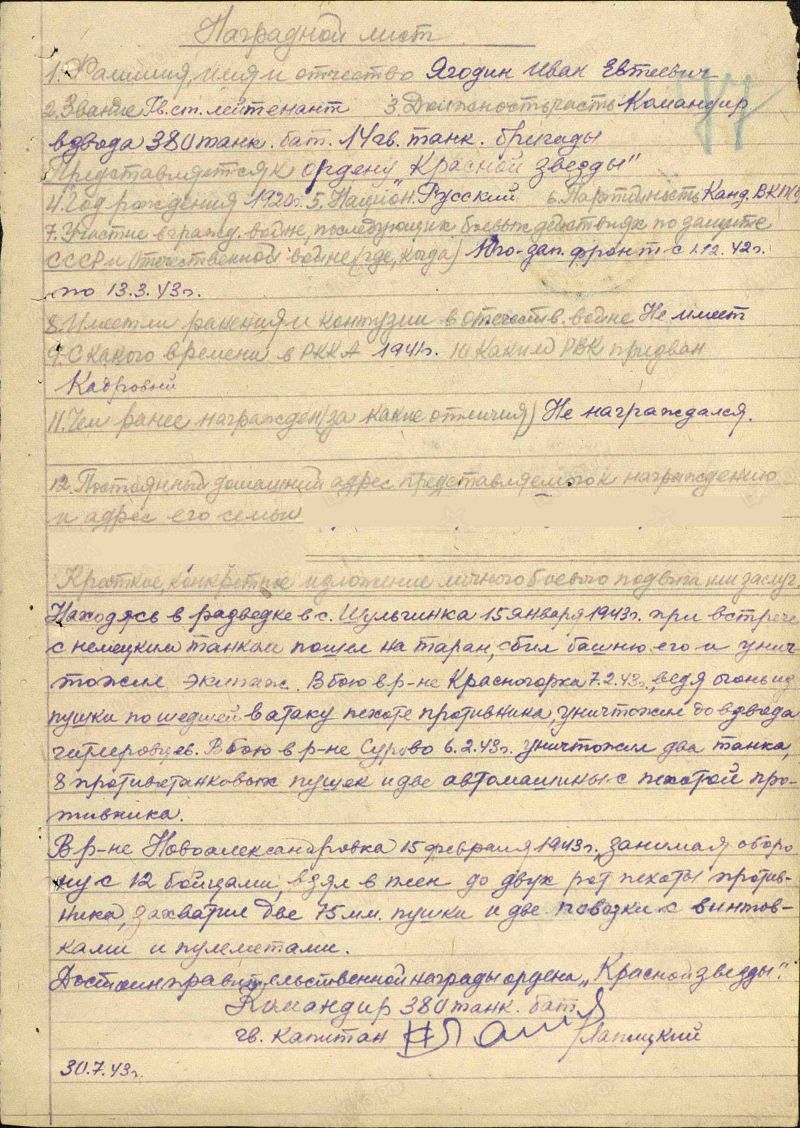 Наградной лист
1. Фамилия, имя и отчество Ягодин Иван Евтеевич
2. Звание Гв. ст. лейтенант 3. Должность, часть Командир
взвода 380 танк. бат. 14 гв. танк. бригады
Представляется к ордену „Красной звезды"
4. Год рождения 1920г. 5. Национ. Русский 6. Партийность Канд. ВКП(б)
7. Участие в гражд. войне, последующих боевых действиях по защите
СССР и Отечественной войне (где, когда) Юго-зап. фронт с 1.12.42г.
по 13.3.43г.
8. Имеет ли ранения и контузии в отечеств. войне Не имеет
9. С какого времени в РККА 1941г. 10. Каким РВК призван
Кадровый
11. Чем ранее награжден (за какие отличия) Не награждался.
12. Постоянный домашний адрес представляемого к награждению
и адрес его семьи
Краткое, конкретное изложение личного боевого подвига или заслуг
Находясь в разведке в с. Шульгинка 15 января 1943г. при встрече
с немецким танком пошел на таран, сбил башню его и унич-
тожил экипаж. В бою в р-не Красногорка 7.2.43г., ведя огонь из
пушки по шедшей в атаку пехоте противника, уничтожил до взвода
гитлеровцев. В бою в р-не Сурово 6.2.43г. уничтожил два танка,
8 противотанковых пушек и две автомашины с пехотой про-
тивника.
В р-не Новоалександровка 15 февраля 1943г., занимая оборо
ну с 12 бойцами, взял в плен до двух рот пехоты против-
ника, захватил две 75 мм. пушки и две повозки с винтов-
ками и пулеметами.
Достоин правительственной награды ордена „Красной звезды".
Командир 380 танк. бат.
гв. капитан /Лапицкий
30.7.43г.